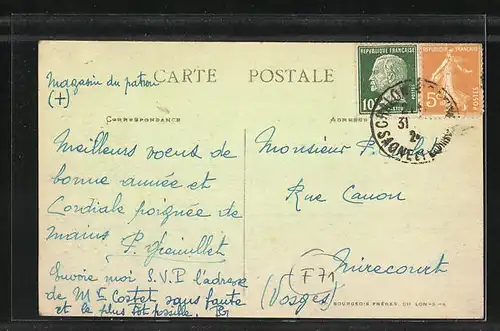 Magasin du patron
(+)
CARTE POSTALE
CORRESPONDANCE
ADRESSE
REPUBLIQUE FRANÇAISE
10
POSTES
REPUBLIQUE FRANÇAISE
5
POSTES
31
SAONE ET
Meilleurs voeux de
bonne année et
Cordiale poignée de
mains
Envoie moi S.V.P l'adresse
de Mr Costet sans faute
et le plus tôt possible.
Monsieur P.
Rue Canon
Mirecourt
(Vosges)
F71
BOURGEOIS FRÈRES, CHALON-S-S